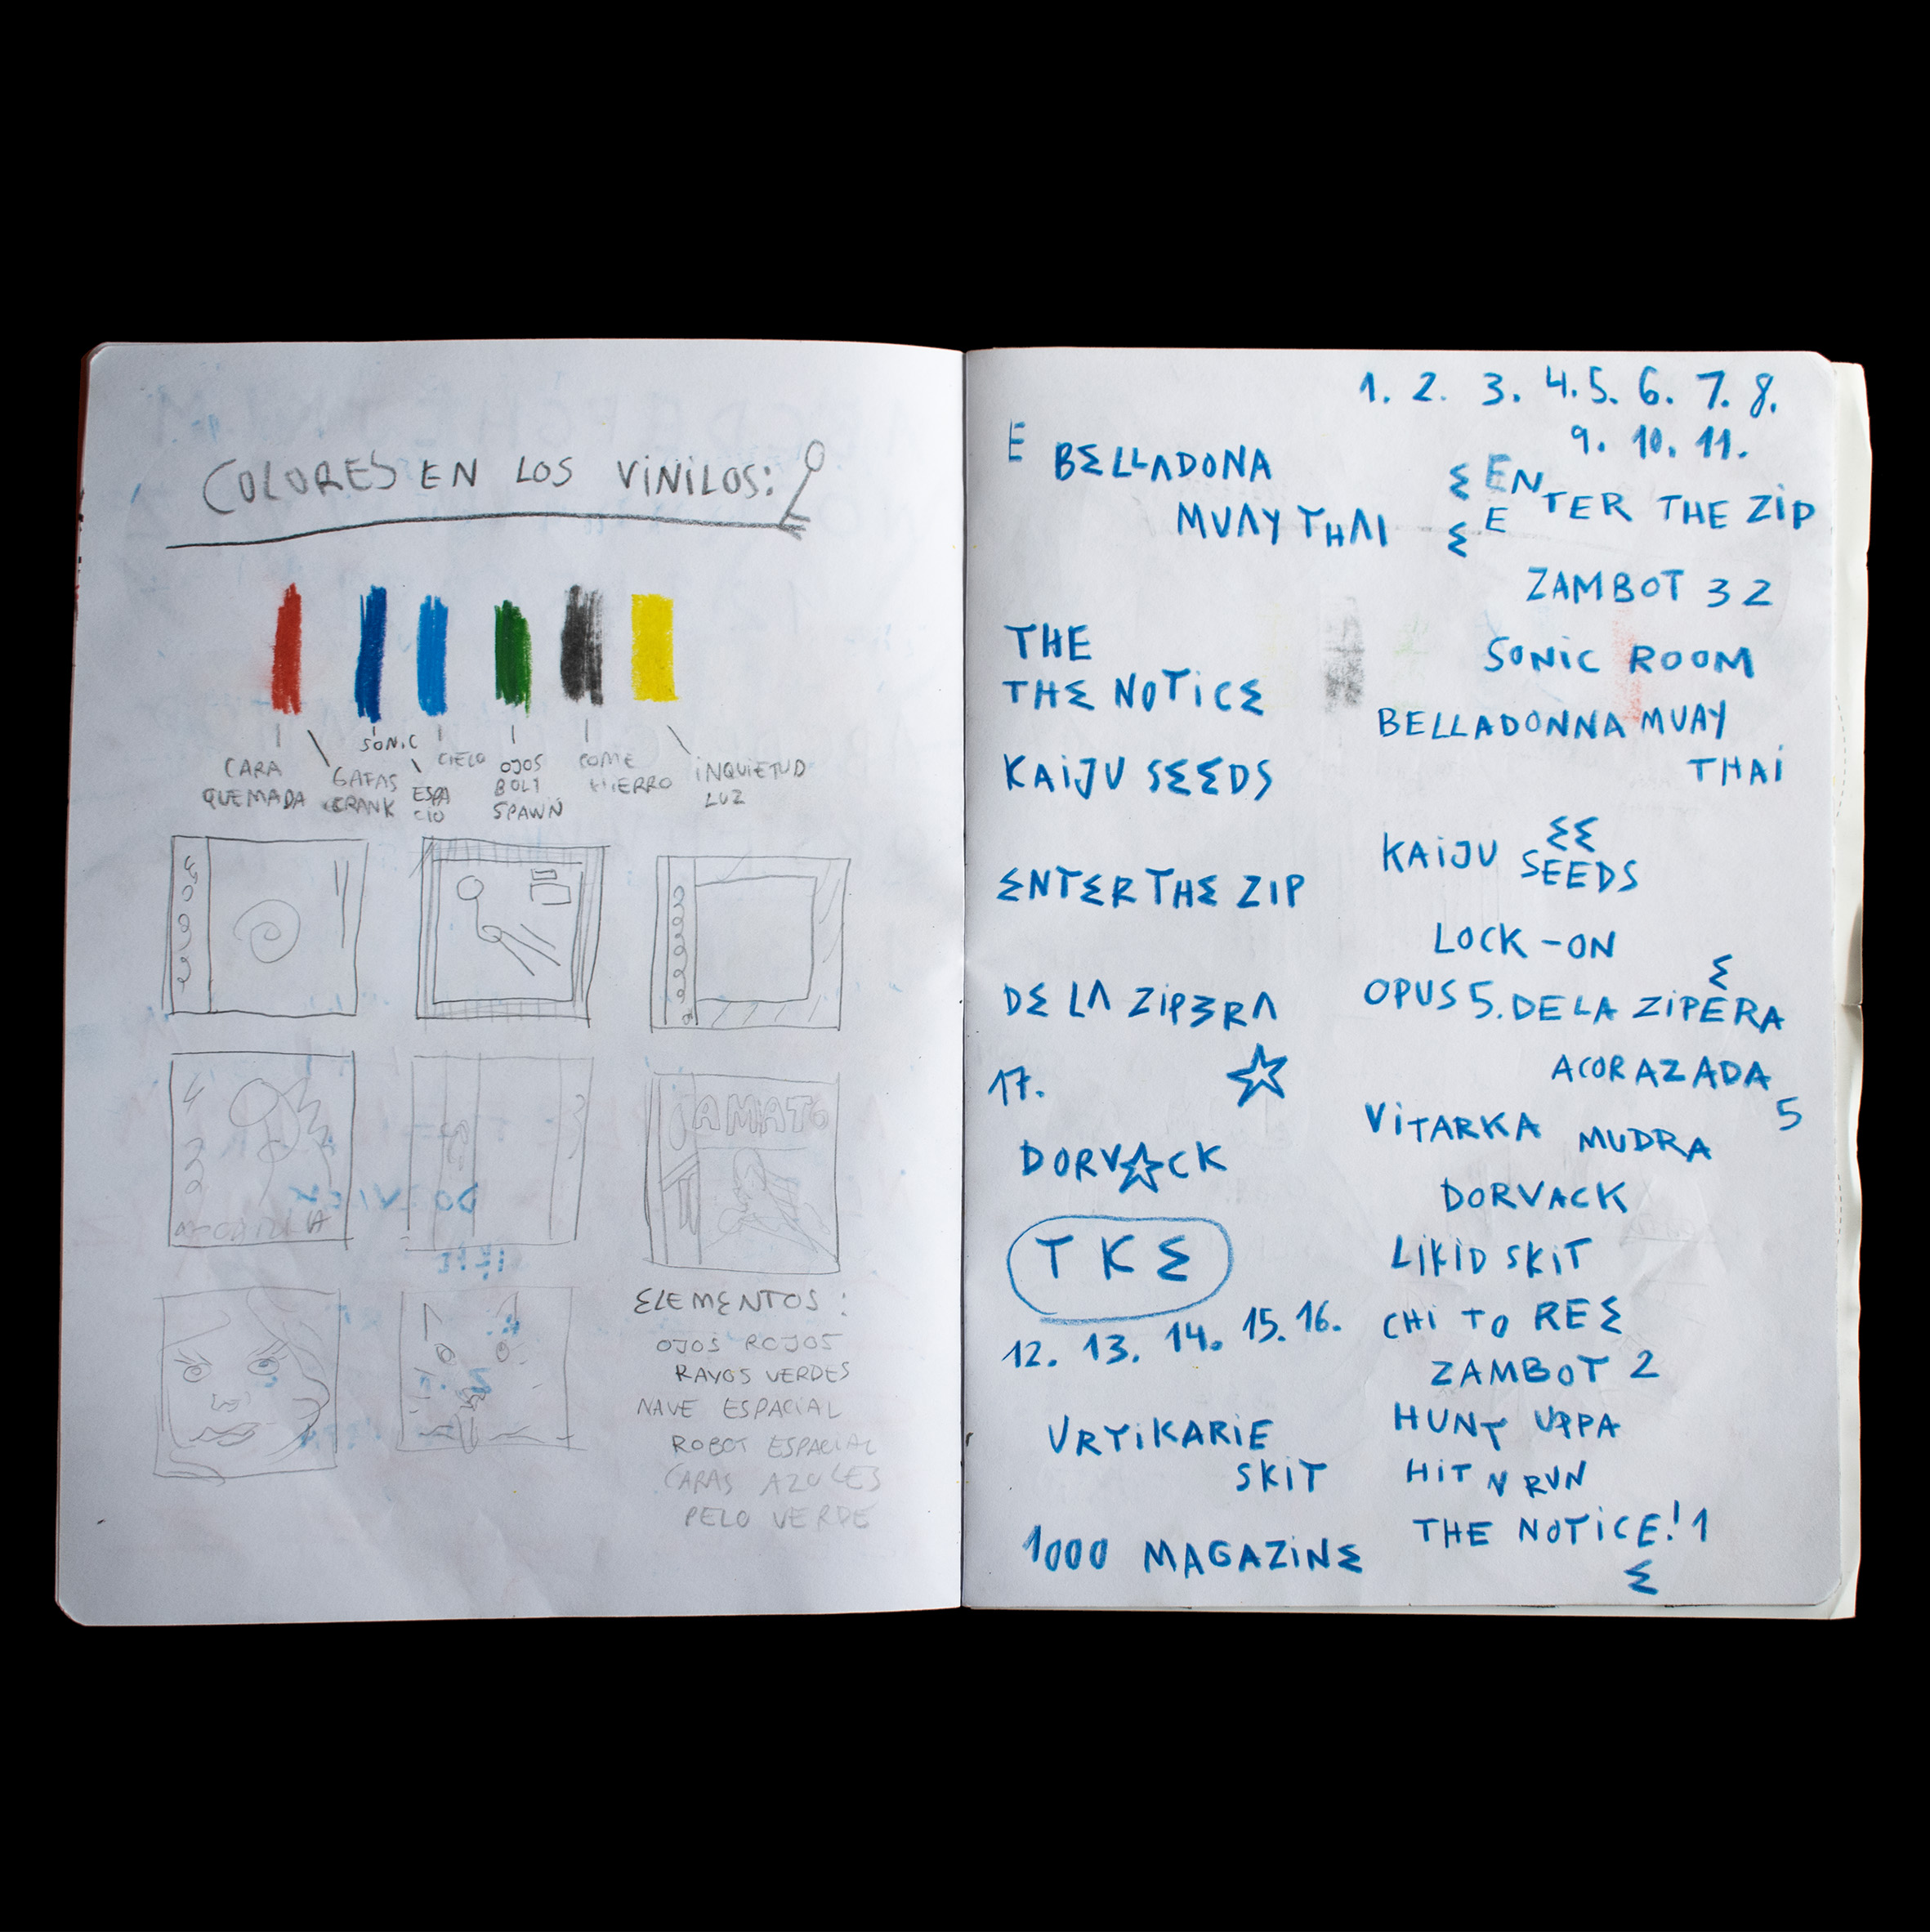 COLORES EN LOS VINILOS:
CARA
QUEMADA
GAFAS
SONIC
ESPA
CIO
CIELO
OJOS
BOLT
SPAWN
COME
HIERRO
INQUIETUD
LUZ
ELEMENTOS:
OJOS ROJOS
RAYOS VERDES
NAVE ESPACIAL
ROBOT ESPACIAL
CARAS AZULES
PELO VERDE
E BELLADONA
MUAY THAI
THE
THE NOTICE
KAIJU SEEDS
ENTER THE ZIP
DE LA ZIPERA
17.
DORV☆CK
TKE
12. 13. 14. 15. 16.
URTIKARIE
SKIT
1000 MAGAZINE
1. 2. 3. 4. 5. 6. 7. 8.
9. 10. 11.
E ENTER THE ZIP
E E
ZAMBOT 3 2
SONIC ROOM
BELLADONNA MUAY
THAI
EE
KAIJU SEEDS
LOCK-ON
E
OPUS 5. DE LA ZIPERA
ACORAZADA
5
VITARKA MUDRA
DORVACK
LIKID SKIT
CHI TO REE
ZAMBOT 2
HUNT UPPA
HIT N RUN
THE NOTICE! 1
E